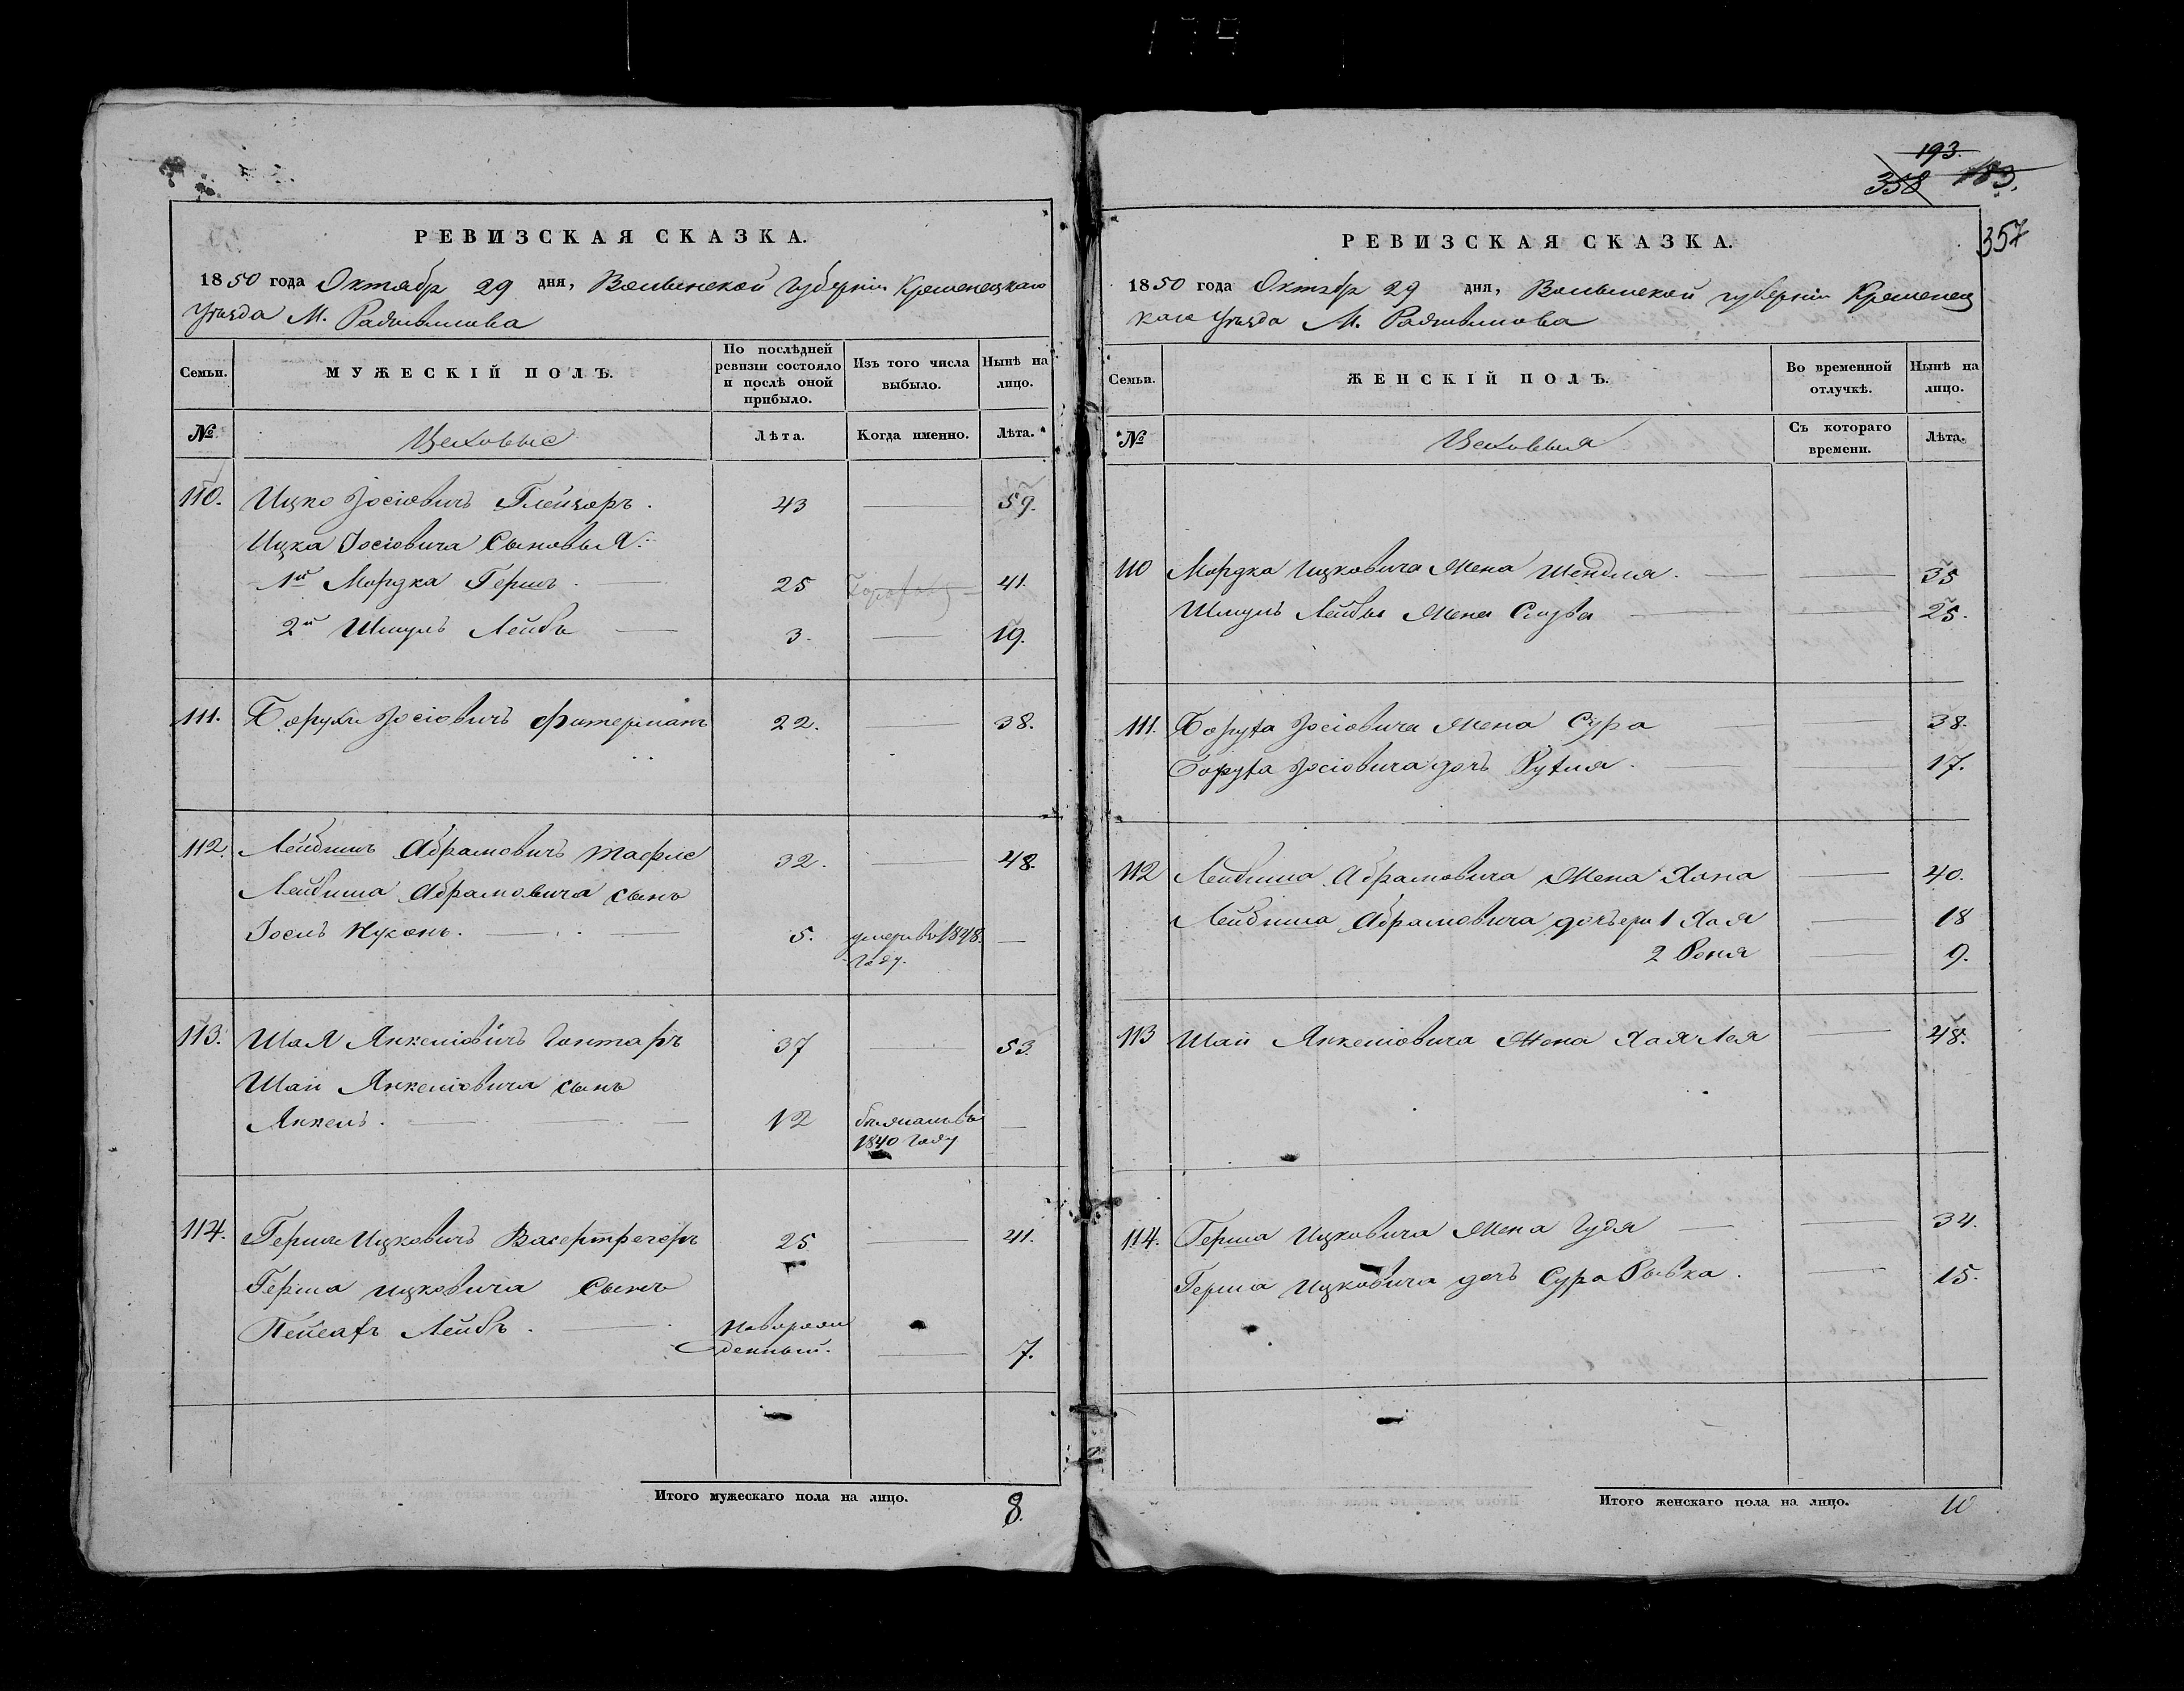 179
РЕВИЗСКАЯ СКАЗКА.
1850 года Октября 29 дня, Волынской губерніи Кременецкаго
Уѣзда М. Радзивилова
Семьи.
МУЖЕСКІЙ ПОЛЪ.
По послѣдней ревизіи состояло и послѣ оной прибыло.
Изъ того числа выбыло.
Нынѣ на лицо.
№
Цеховые
Лѣта.
Когда именно.
Лѣта.
110. Ицко Іосіовичъ Глейзоръ. 43 59.
Ицка Іосіовича Сыновья:
1й Мордка Гершъ. 25 41.
2й Шмуль Лейбъ 3. 19.
111. Борухъ Іосіовичъ Фитерманъ 22. 38.
112. Лейбишъ Абрамовичъ Тафлс 32. 48.
Лейбиша Абрамовича сынъ
Іосль Нусонъ. 5. умеръ въ 1848.
году.
113. Шая Янкеліовичъ Гонтаръ 37 53.
Шаи Янкеліовича сынъ
Янкель. 12
1840 году
114. Герш Ицковичъ Васертрегеръ 25. 41.
Герша Ицковича Сынъ
Пейсахъ Лейбъ. новорож
денный. 7.
Итого мужескаго пола на лицо. 8.
193.
358 183.
357
РЕВИЗСКАЯ СКАЗКА.
1850 года Октябр 29 дня, Волынской губерніи Кременец
каго Уѣзда М. Радзивилова
Семьи.
ЖЕНСКІЙ ПОЛЪ.
Во временной отлучкѣ.
Нынѣ на лицо.
№
Цеховыя
Съ котораго времени.
Лѣта.
110 Мордка Ицковича Жена Шендля. 35
Шмуль Лейбы Жена Слува 25.
111. Боруха Іосіовича Жена Сура 38.
Боруха Іосіовича дочь Рухля. 17.
112 Лейбиша Абрамовича Жена Хана 40.
Лейбиша Абрамовича дочьери 1 Хая 18
2 Роня 9.
113 Шаи Янкеліовича Жена Хая Лея 48.
114. Герша Ицковича Жена Гудя 34.
Герша Ицковича дочь Сура Рывка. 15.
Итого женскаго пола на лицо. 10